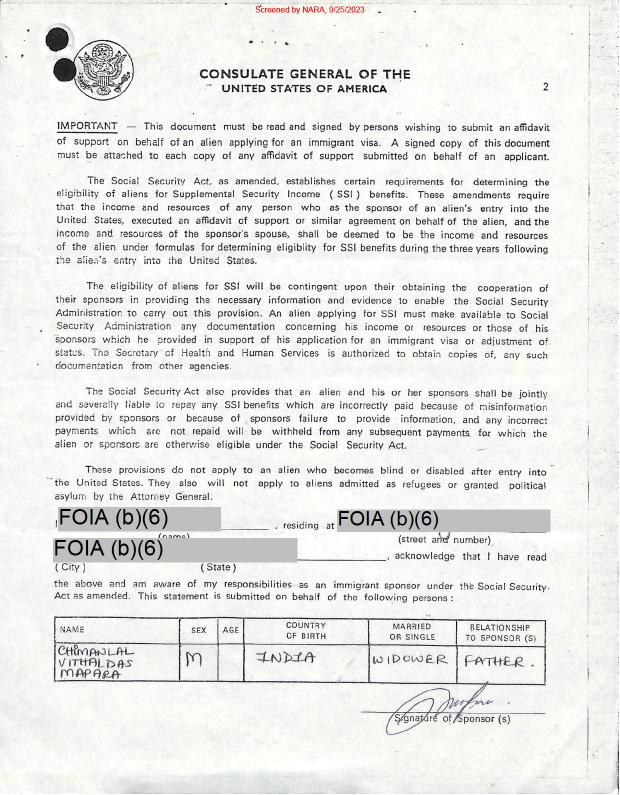 Screened by NARA, 9/25/2023
CONSULATE GENERAL OF THE
UNITED STATES OF AMERICA
2
IMPORTANT — This document must be read and signed by persons wishing to submit an affidavit
of support on behalf of an alien applying for an immigrant visa. A signed copy of this document
must be attached to each copy of any affidavit of support submitted on behalf of an applicant.
The Social Security Act, as amended, establishes certain requirements for determining the
eligibility of aliens for Supplemental Security Income ( SSI ) benefits. These amendments require
that the income and resources of any person who as the sponsor of an alien's entry into the
United States, executed an affidavit of support or similar agreement on behalf of the alien, and the
income and resources of the sponsor's spouse, shall be deemed to be the income and resources
of the alien under formulas for determining eligiblity for SSI benefits during the three years following
the alien's entry into the United States.
The eligibility of aliens for SSI will be contingent upon their obtaining the cooperation of
their sponsors in providing the necessary information and evidence to enable the Social Security
Administration to carry out this provision. An alien applying for SSI must make available to Social
Security Administration any documentation concerning his income or resources or those of his
sponsors which he provided in support of his application for an immigrant visa or adjustment of
status. The Secretary of Health and Human Services is authorized to obtain copies of, any such
documentation from other agencies.
The Social Security Act also provides that an alien and his or her sponsors shall be jointly
and severally liable to repay any SSI benefits which are incorrectly paid because of misinformation
provided by sponsors or because of sponsors failure to provide information, and any incorrect
payments which are not repaid will be withheld from any subsequent payments for which the
alien or sponsors are otherwise eligible under the Social Security Act.
These provisions do not apply to an alien who becomes blind or disabled after entry into
the United States. They also will not apply to aliens admitted as refugees or granted political
asylum by the Attorney General.
I FOIA (b)(6) , residing at FOIA (b)(6)
(name) (street and number)
FOIA (b)(6) , acknowledge that I have read
( City ) ( State )
the above and am aware of my responsibilities as an immigrant sponsor under the Social Security
Act as amended. This statement is submitted on behalf of the following persons :
NAME SEX AGE COUNTRY OF BIRTH MARRIED OR SINGLE RELATIONSHIP TO SPONSOR (S)
CHIMANLAL
VITHALDAS
MAPARA
M INDIA WIDOWER FATHER.
Signature of Sponsor (s)